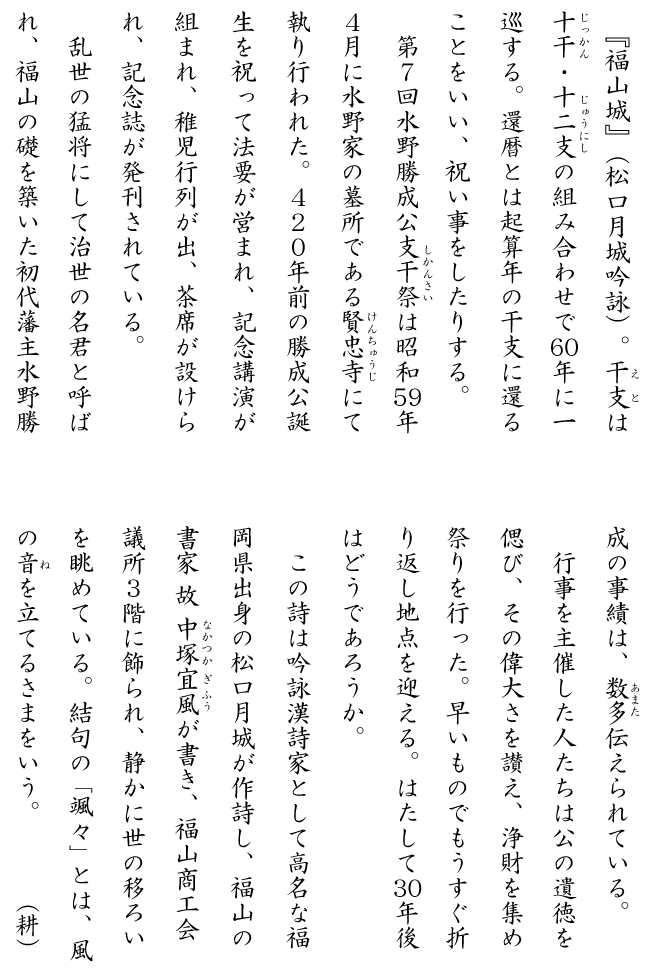 『福山城』（松口月城吟詠）。干支は
十干・十二支の組み合わせで60年に一
巡する。還暦とは起算年の干支に還る
ことをいい、祝い事をしたりする。
第７回水野勝成公支干祭は昭和59年
４月に水野家の墓所である賢忠寺にて
執り行われた。４２０年前の勝成公誕
生を祝って法要が営まれ、記念講演が
組まれ、稚児行列が出、茶席が設けら
れ、記念誌が発刊されている。
乱世の猛将にして治世の名君と呼ば
れ、福山の礎を築いた初代藩主水野勝
成の事績は、数多伝えられている。
行事を主催した人たちは公の遺徳を
偲び、その偉大さを讃え、浄財を集め
祭りを行った。早いものでもうすぐ折
り返し地点を迎える。はたして30年後
はどうであろうか。
この詩は吟詠漢詩家として高名な福
岡県出身の松口月城が作詩し、福山の
書家 故 中塚宜風が書き、福山商工会
議所３階に飾られ、静かに世の移ろい
を眺めている。結句の「颯々」とは、風
の音を立てるさまをいう。　（耕）